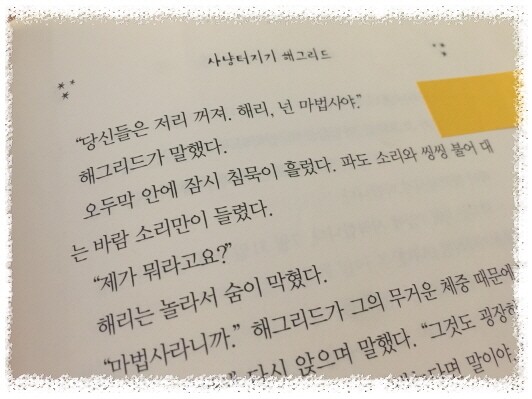 사냥터지기 해그리드
“당신들은 저리 꺼져. 해리, 넌 마법사야.”
해그리드가 말했다.
오두막 안에 잠시 침묵이 흘렀다. 파도 소리와 씽씽 불어 대
는 바람 소리만이 들렸다.
“제가 뭐라고요?”
해리는 놀라서 숨이 막혔다.
“마법사라니까.” 해그리드가 그의 무거운 체중 때문에
다시 앉으며 말했다. “그것도 굉장한
말이야.